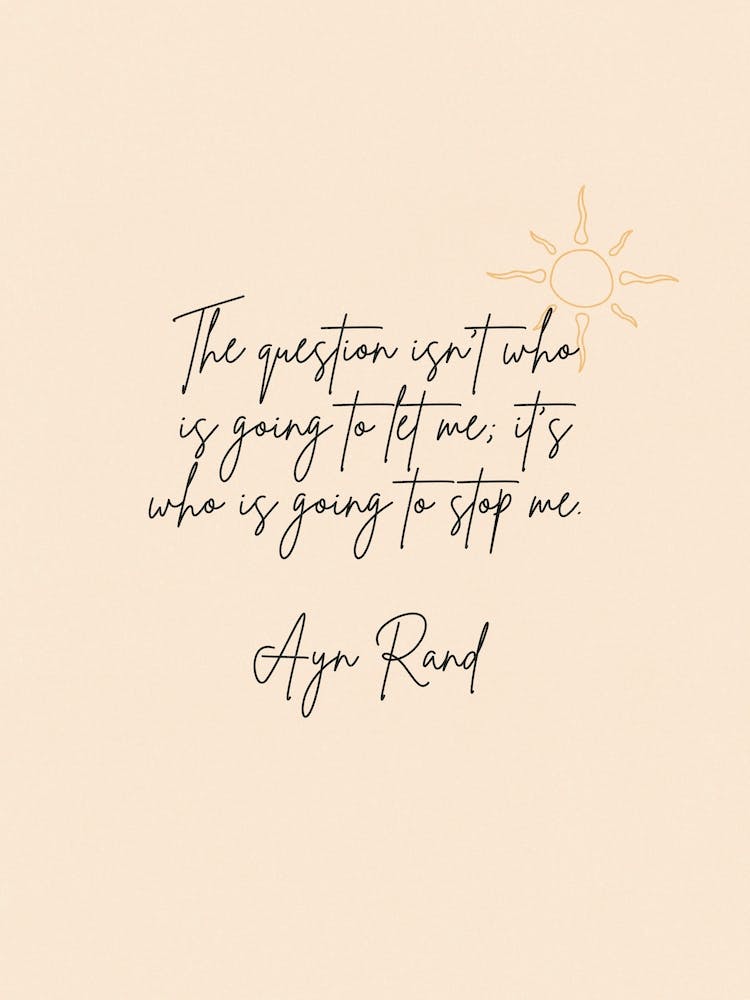 The question isn't who
is going to let me; it's
who is going to stop me.
Ayn Rand